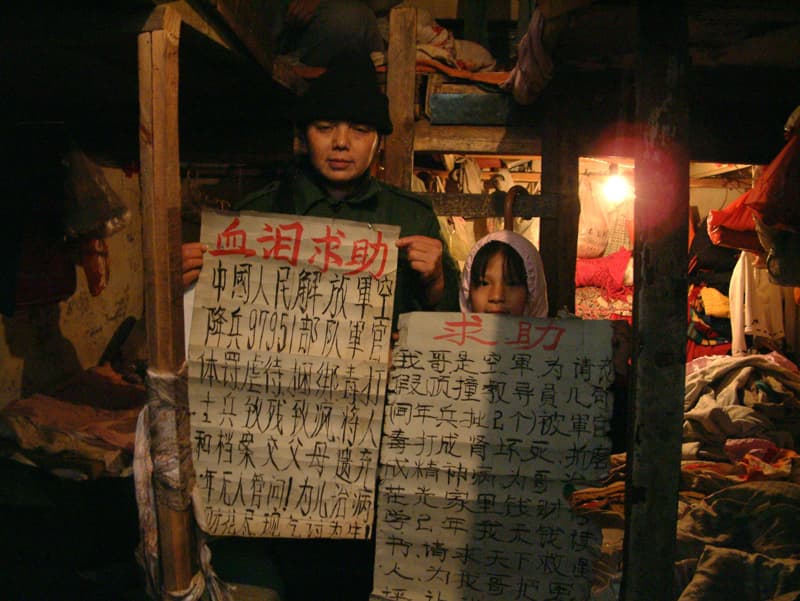 血泪求助
中國人民解放軍空
降兵97951部队軍官
体罚虐待捆绑毒打
士兵致残致疯将人
和档案交父母遗弃
年无人管问!为儿治病
求助
我哥是空軍为请
假顶撞教导員
年兵批2个)被軍
毒打成肾坏死.折
成精神病为哥
花光家里钱财
学已年我无钱读
书.请求天下救星
人为我哥把軍